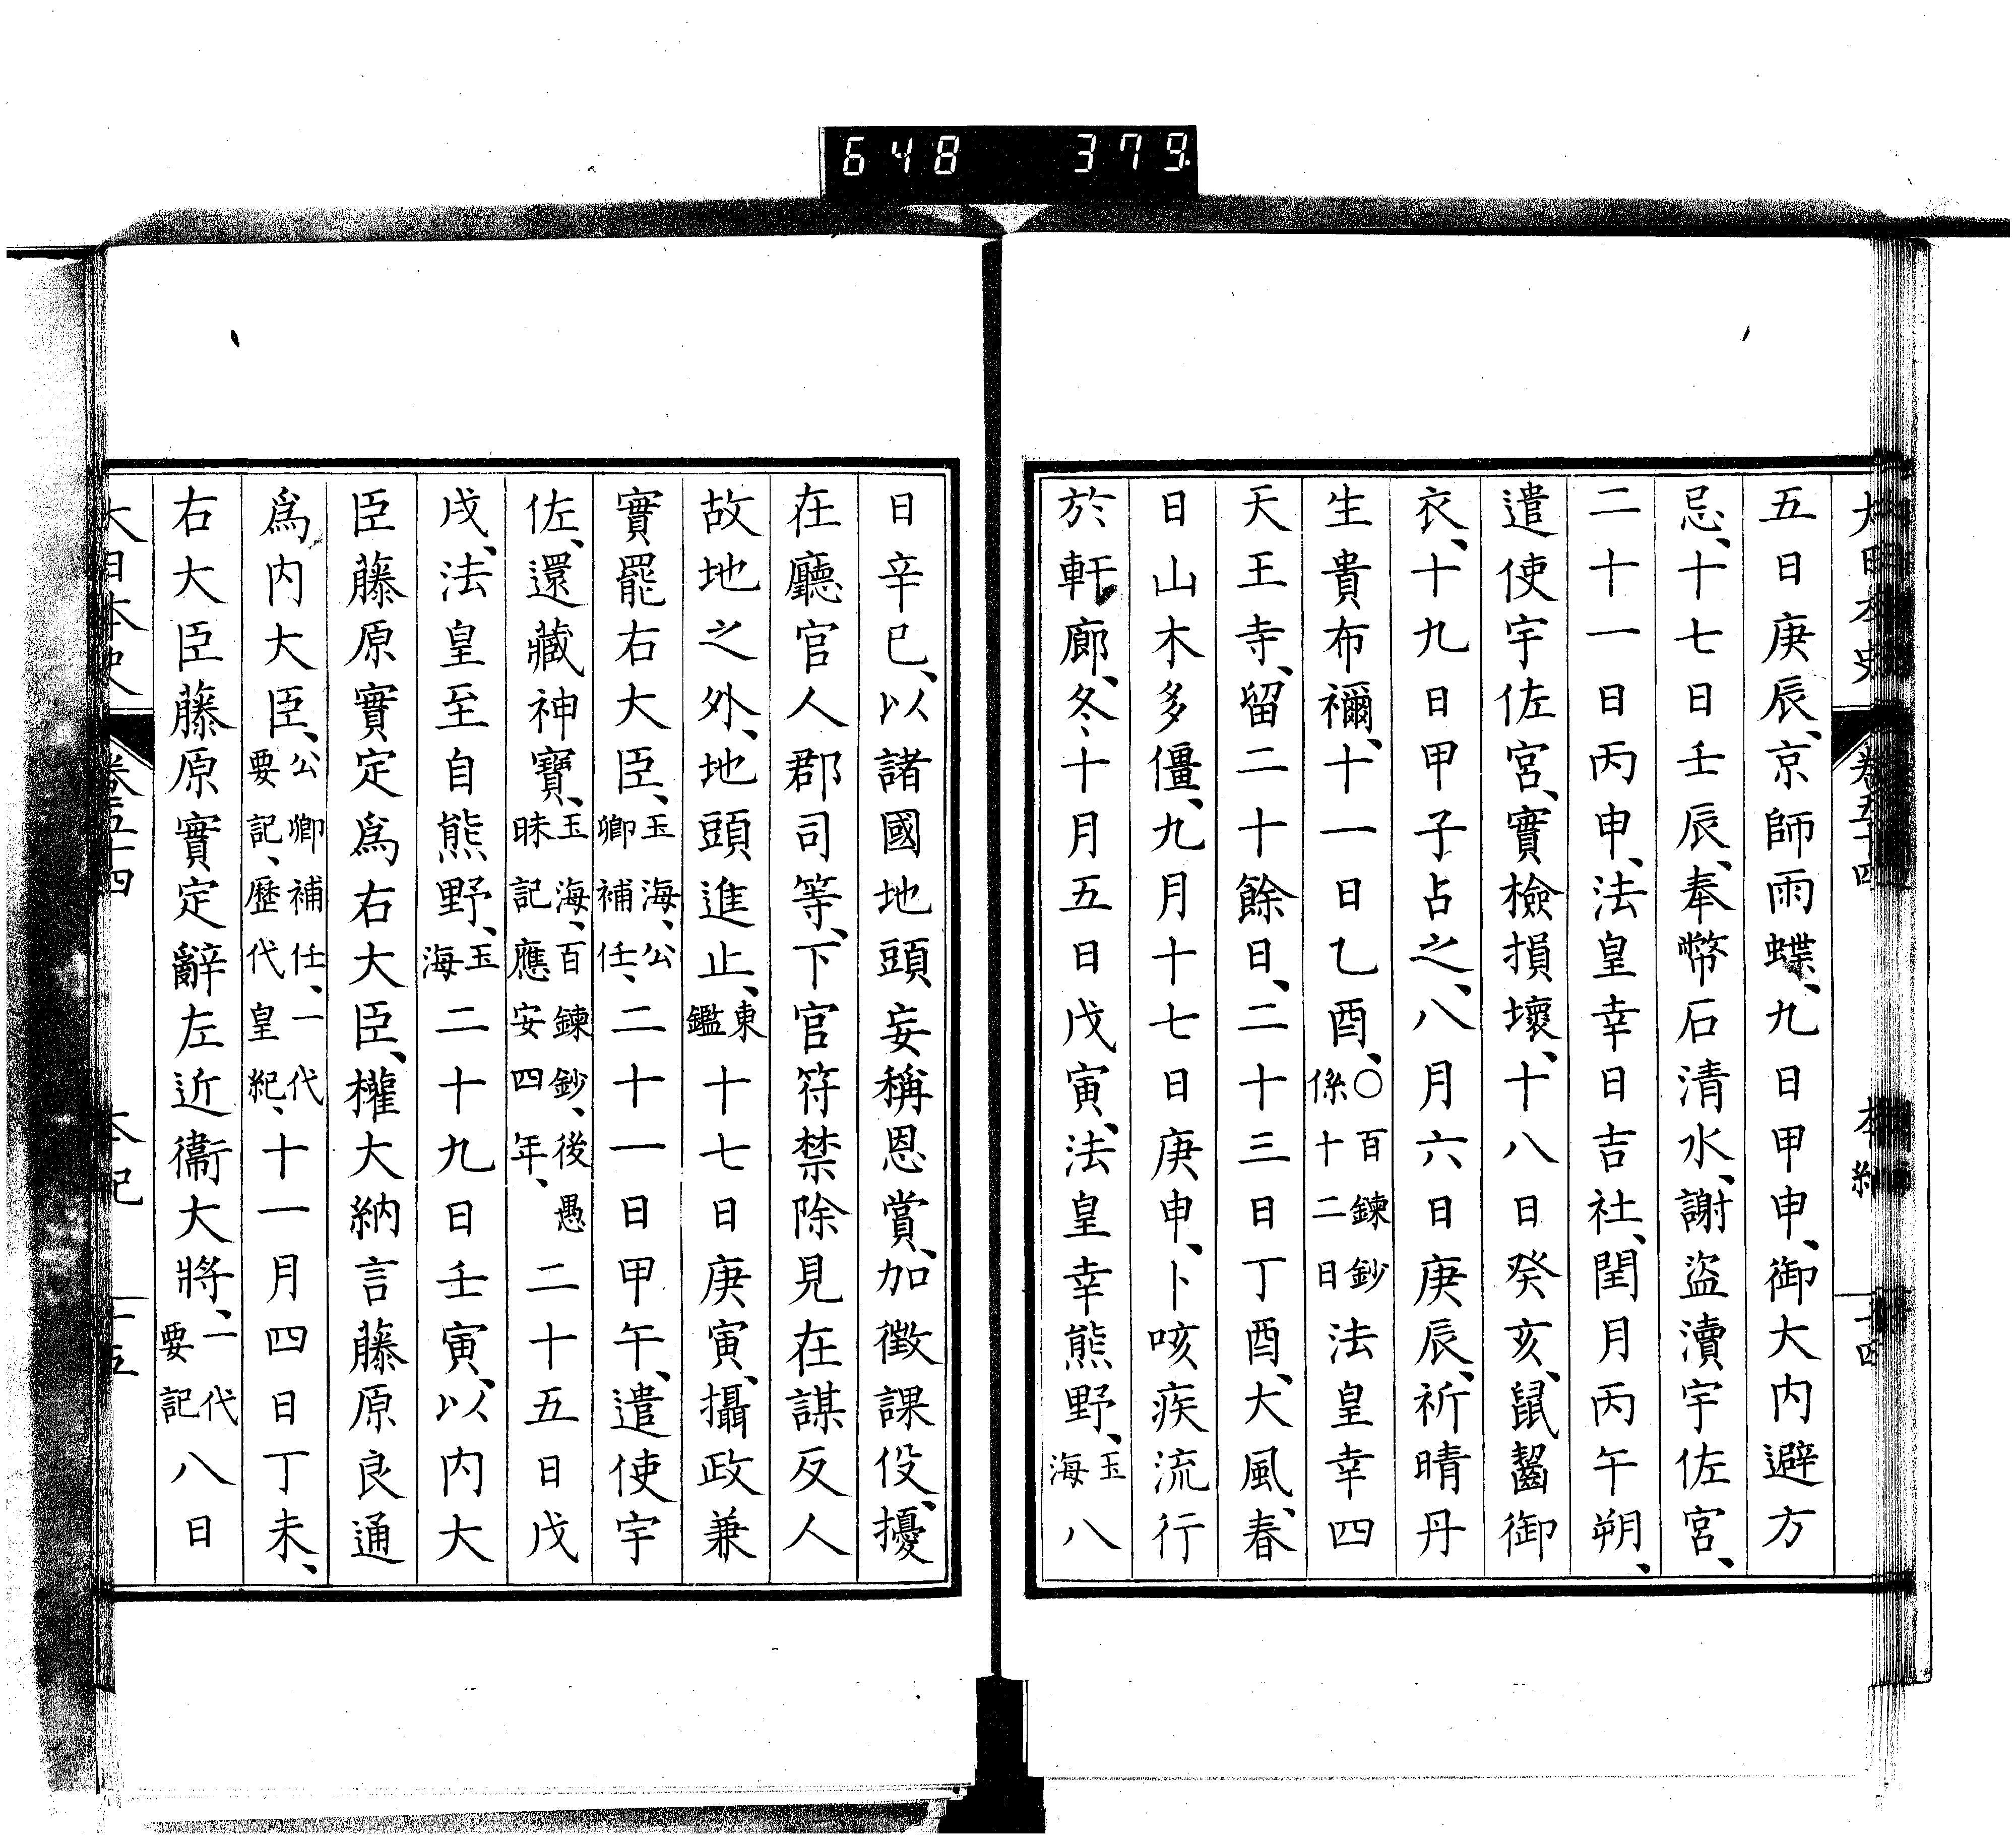 648 379
大日本史 卷五十四 本紀 二十四
五日庚辰、京師雨蝶、九日甲申、御大内避方
忌、十七日壬辰、奉幣石清水、謝盜瀆宇佐宮、
二十一日丙申、法皇幸日吉社、閏月丙午朔、
遣使宇佐宮、實檢損壞、十八日癸亥、鼠齧御
衣、十九日甲子占之、八月六日庚辰、祈晴丹
生貴布禰、十一日乙酉、○百鍊鈔係十二日法皇幸四
天王寺、留二十餘日、二十三日丁酉、大風、春
日山木多僵、九月十七日庚申、卜咳疾流行
於軒廊、冬十月五日戊寅、法皇幸熊野、玉海八
日辛巳、以諸國地頭妄稱恩賞、加徵課役、擾
在廳官人郡司等、下官符禁除見在謀反人
故地之外、地頭進止、東鑑十七日庚寅、攝政兼
實罷右大臣、玉海、公卿補任、二十一日甲午、遣使宇
佐、還藏神寶、玉海、百鍊鈔、後愚昧記應安四年、二十五日戊
戌、法皇至自熊野、玉海二十九日壬寅、以内大
臣藤原實定爲右大臣、權大納言藤原良通
爲内大臣、公卿補任、一代要記、歷代皇紀、十一月四日丁未、
右大臣藤原實定辭左近衞大將、一代要記八日
大日本史 卷五十四 本紀 二十五